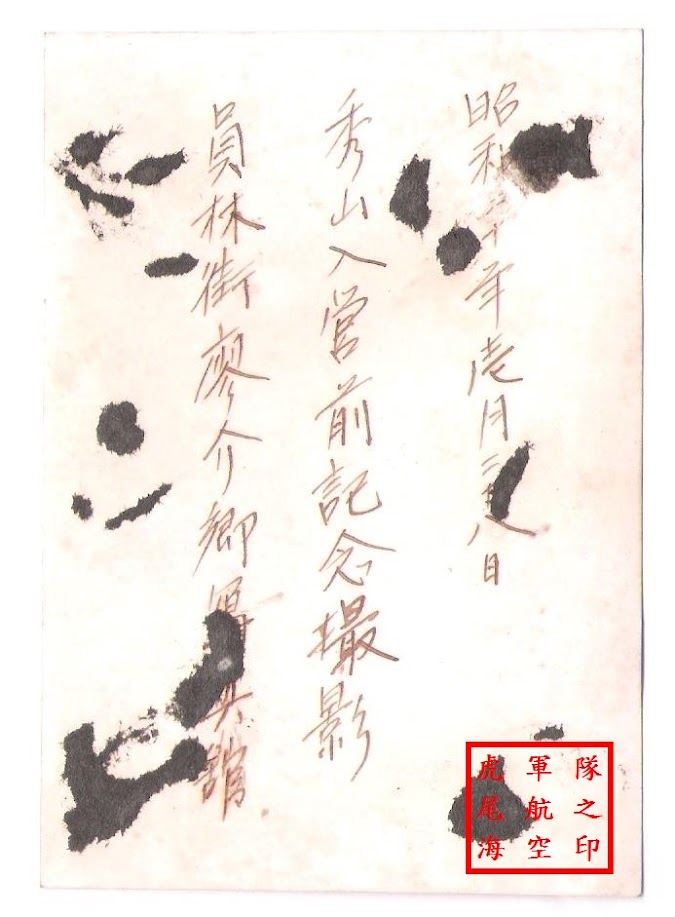 昭和二十年壱月二八日
秀山入営前記念撮影
員林街廖介卿寫真館
虎尾海
軍航空
隊之印